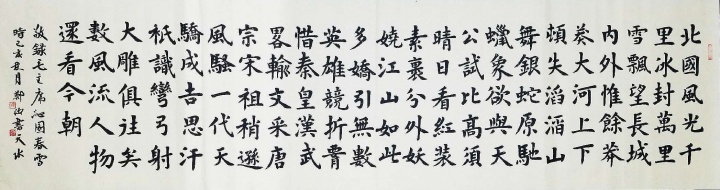 北國風光千
里冰封萬里
雪飄望長城
内外惟餘莽
莽大河上下
頓失滔滔山
舞銀蛇原馳
蠟象欲與天
公試比高須
晴日看紅裝
素裹分外妖
嬈江山如此
多嬌引無數
英雄競折腰
惜秦皇漢武
畧輸文采唐
宗宋祖稍遜
風騷一代天
驕成吉思汗
衹識彎弓射
大雕俱往矣
數風流人物
還看今朝
敬錄毛主席沁園春雪
時己亥月鄭書天水